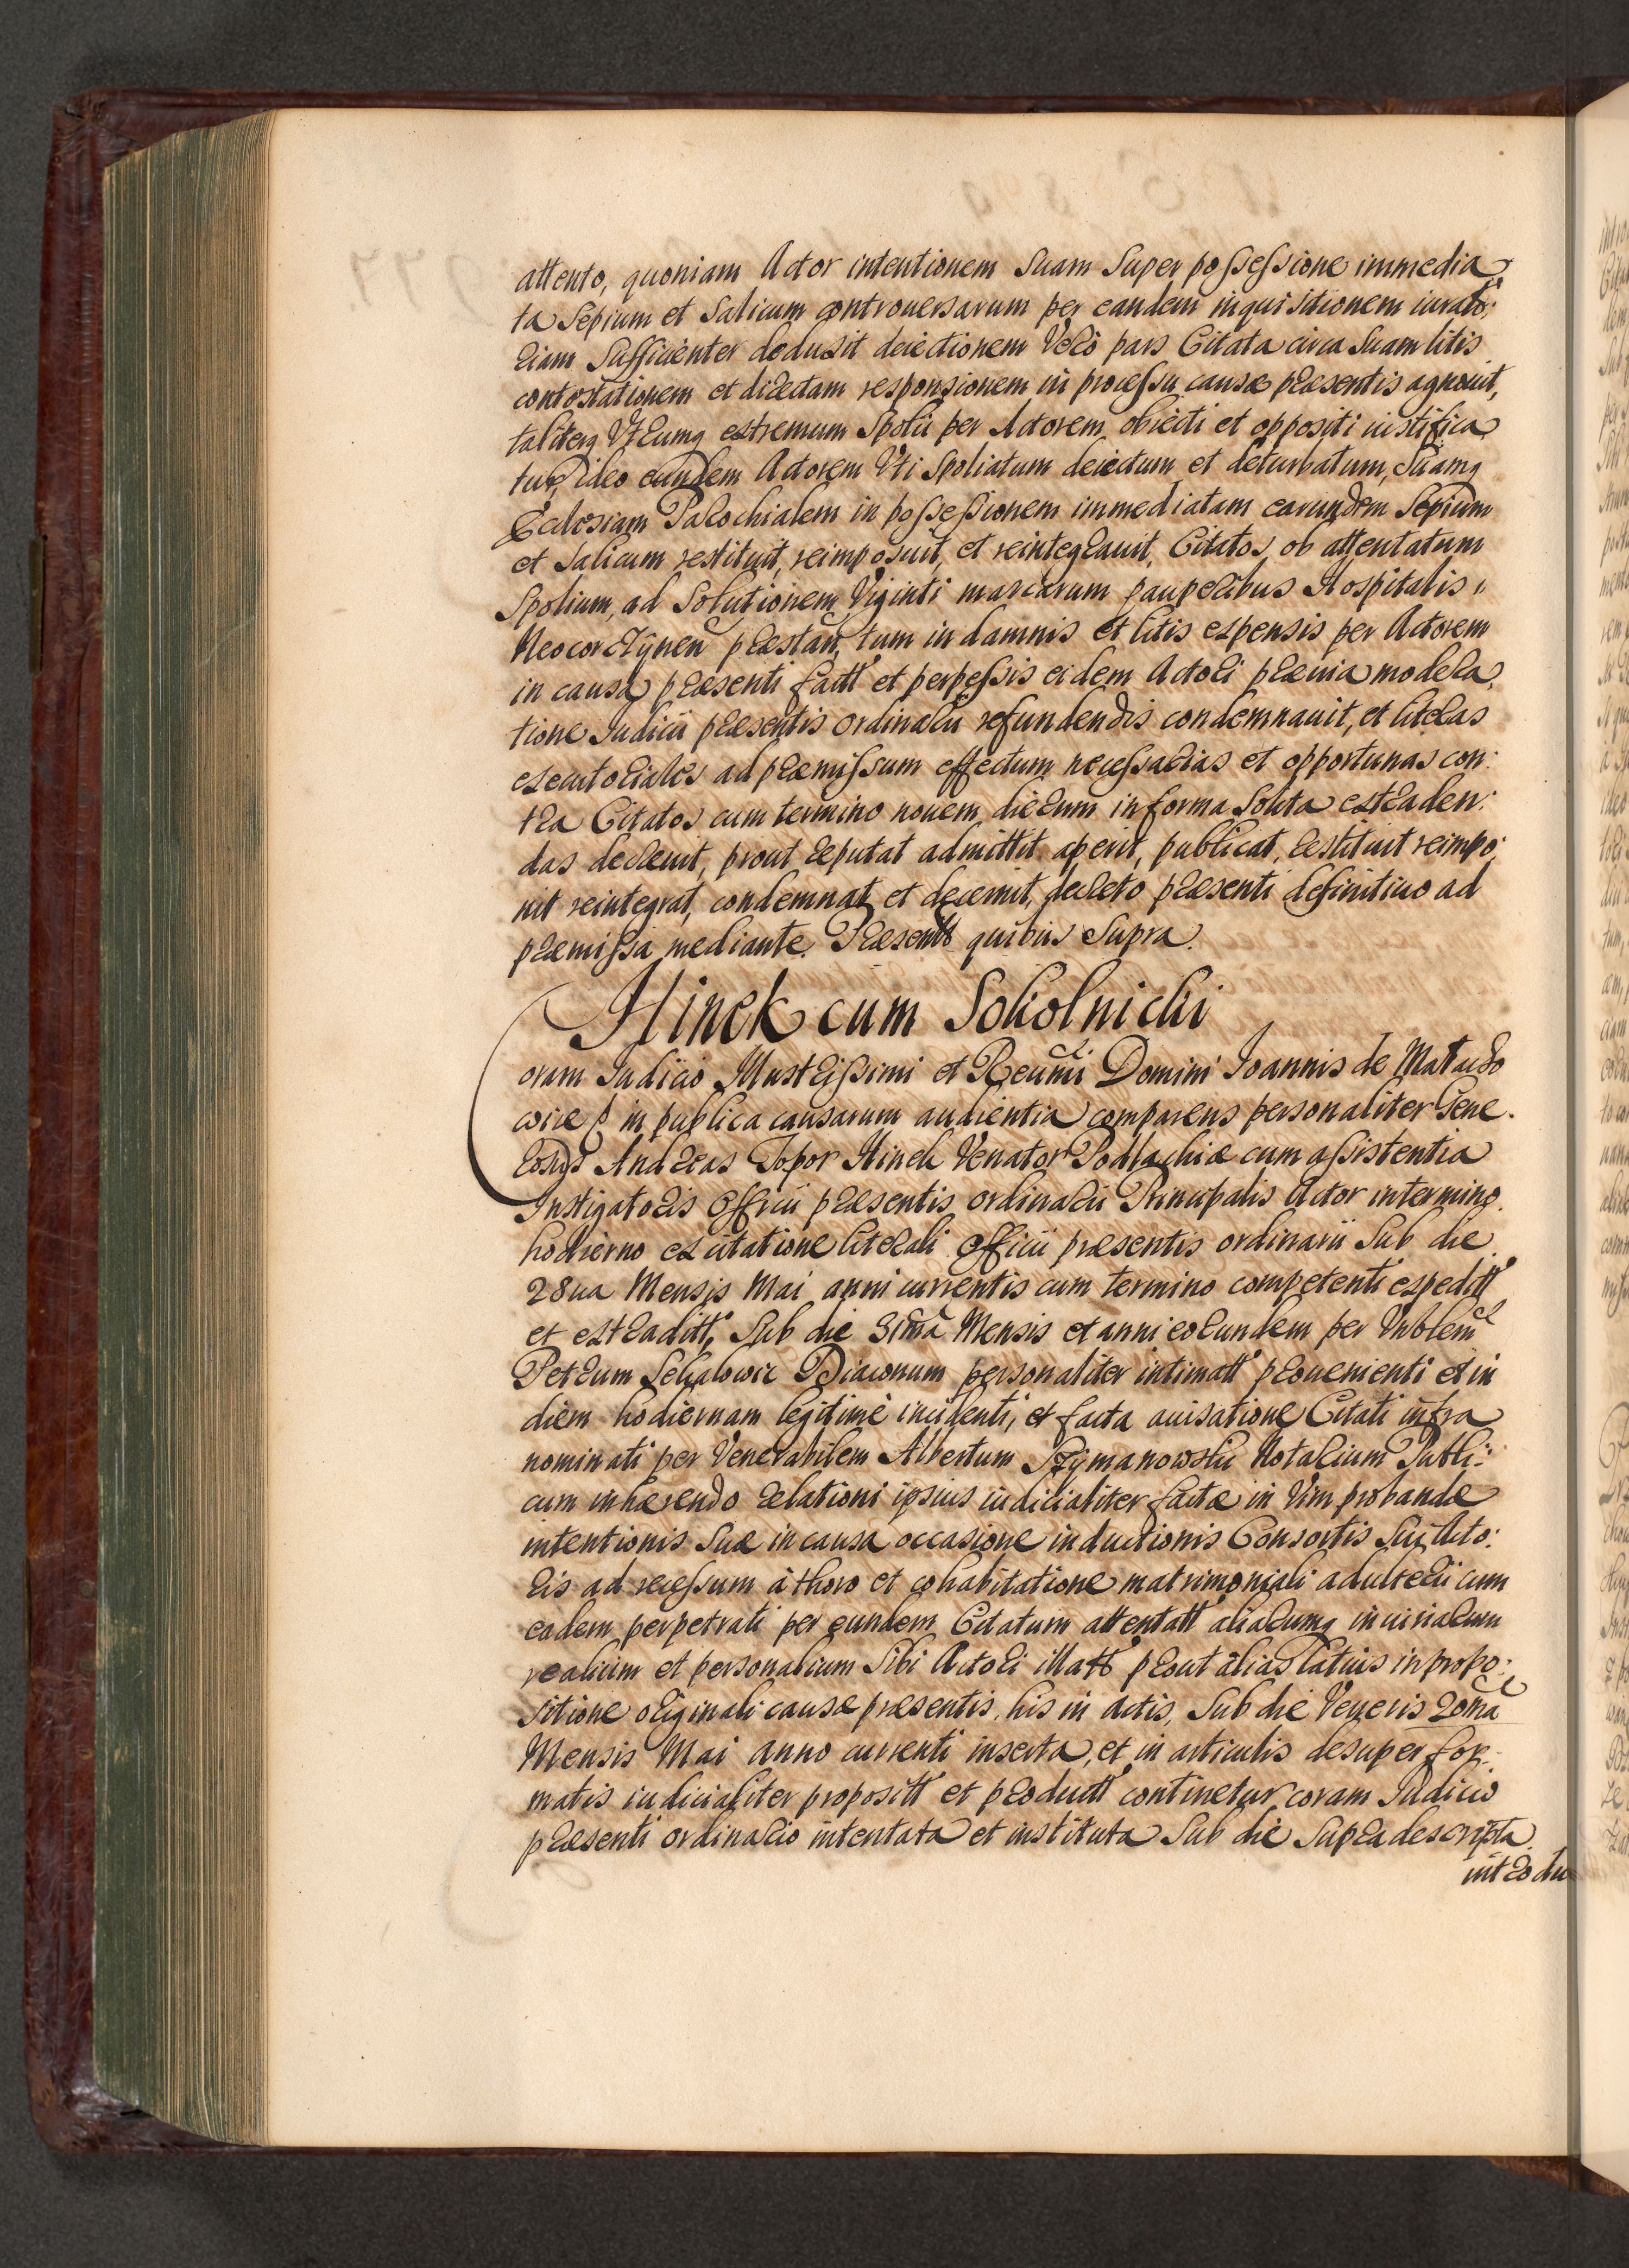 attento, quoniam Actor intentionem Suam Super possessione immedia
ta Sepium et Salicum controuersarum per eandem inquisitionem iurato:
riam Sufficienter deduxit deiectionem Vero pars Citata circa Suam litis
contestationem et directam responsionem in processu causæ præsentis agnouit,
taliterq Vtrumq extremum Spolii per Actorem obiecti et oppositi iustifica
tur, ideo eundem Actorem Vti Spoliatum deiectum et deturbatum, Suamq
Ecclesiam Parochialem in possessionem immediatam earundem Sepium
et Salicum restituit, reimposuit, et reintegrauit, Citatos ob attentatum
Spolium, ad Solutionem Viginti marcarum pauperibus Hospitalis
Neocorczÿnen præstan, tum in damnis et litis expensis per Actorem
in causa præsenti factt et perpessis eidem Actori præuia modera,
tione Iudicii præsentis ordinarii refundendis condemnauit, et literas
executoriales ad præmissum effectum necessarias et opportunas con:
tra Citatos cum termino nouem dierum in forma Solita extraden:
das decreuit, prout reputat admittit aperit, publicat, restituit reimpo:
nit reintegrat, condemnat et decernit, decreto præsenti definitiuo ad
præmissa mediante. Præsentt quibus Supra.
Hinek cum Sokolnicki
Coram Iudicio Illustrissimi et Reuñi Domini Ioannis de Matado
in publica causarum audientia comparens personaliter Gene.
rosus Andreas Topor Hinek Venator Podlachiæ cum assistentia
Instigatoris Officii præsentis ordinarii Principalis Actor in termino
hodierno ex citatione literali Officii præsentis ordinarii Sub die
28ua Mensis Mai anni currentis cum termino competenti expeditt
et extraditt, Sub die 31ma Mensis et anni eorundem per Vnblem
Petrum Diaconum personaliter intimatt prouenienti et in
diem hodiernam legitime incidenti, et facta auisatione Citati infra
nominati per Venerabilem Albertum Szymanowski Notarium Publi:
cum inhærendo relationi ipsius iudicialiter factæ in Vim probandæ
intentionis Suæ in causa occasione inductionis Consortis Sui Acto:
ris ad recessum à thoro et cohabitatione matrimoniali adulterii cum
eadem perpetrati per eundem Citatum attentatt aliarumq iniuriarum
realium et personalium Sibi Actori illatt prout alias latius in propo:
sitione originali causæ præsentis, his in Actis, Sub die Veneris 20ma
Mensis Mai anno currenti inserta, et in articulis desuper for:
matis iudicialiter propositt et productt continetur coram Iudicio
præsenti ordinario intentata et instituta Sub die Supra descripta
introdu